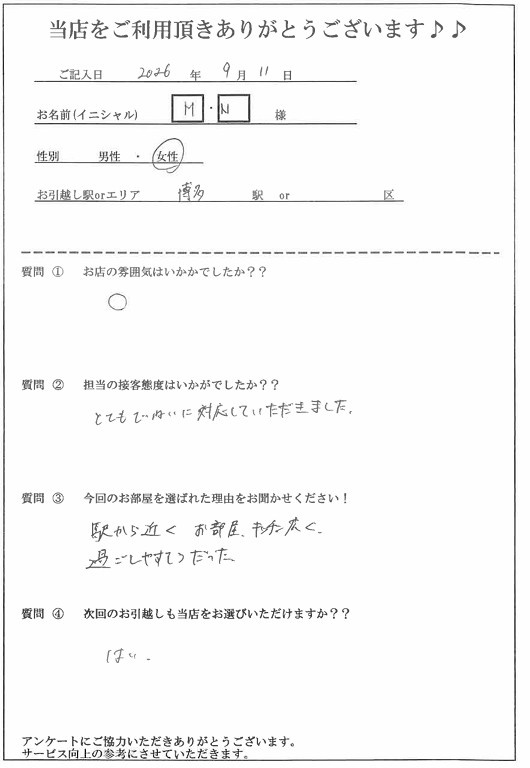 当店をご利用頂きありがとうございます♪♪
ご記入日 2026 年 9 月 11 日
お名前(イニシャル) M ・ N 様
性別 男性 ・ 女性
お引越し駅orエリア 博多 駅 or 区
質問 ① お店の雰囲気はいかかでしたか？？
○
質問 ② 担当の接客態度はいかがでしたか？？
とてもていねいに対応していただきました。
質問 ③ 今回のお部屋を選ばれた理由をお聞かせください！
駅から近く お部屋、キッチン広く、
過ごしやすそうだった
質問 ④ 次回のお引越しも当店をお選びいただけますか？？
はい.
アンケートにご協力いただきありがとうございます。
サービス向上の参考にさせていただきます。